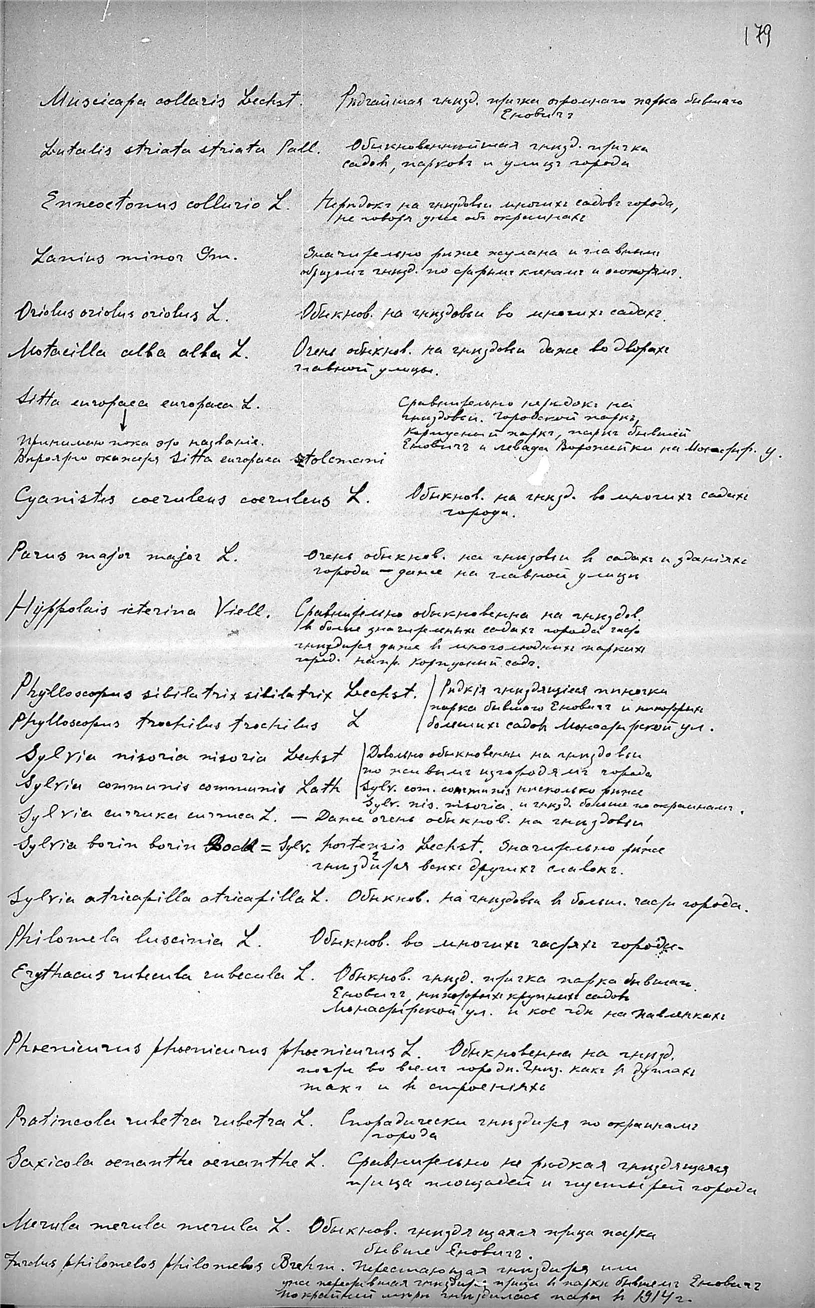 179
Muscicapa collaris Bechst. Рѣдчайшая гнѣзд. птичка огромнаго парка бывшаго
Еновичъ
Butalis striata striata Pall. Обыкновеннѣйшая гнѣзд. птичка
садовъ, парковъ и улицъ города
Enneoctonus collurio L. Нерѣдокъ на гнѣздовьи многихъ садовъ города,
не говоря уже объ окраинахъ
Lanius minor Gm. Значительно рѣже жулана и главнымъ
образомъ гнѣзд. по старымъ кленамъ и осокорямъ.
Oriolus oriolus oriolus L. Обыкнов. на гнѣздовьи во многихъ садахъ.
Motacilla alba alba L. Очень обыкнов. на гнѣздовьи даже во дворахъ
главной улицы.
Sitta europaea europaea L. Сравнительно нерѣдокъ на
гнѣздовьи. Городской паркъ,
Корпусный паркъ, паркъ бывшій
Еновичъ и левада Воронейки на Монастыр. у.
Принимаю пока это названіе.
Вѣроятно окажется Sitta europaea stolcmani
Cyanistes coeruleus coeruleus L. Обыкнов. на гнѣзд. во многихъ садахъ
города.
Parus major major L. Очень обыкнов. на гнѣздовьи въ садахъ и зданіяхъ
города – даже на главной улицѣ
Hyppolais icterina Viell. Сравнительно обыкновенна на гнѣздов.
въ болѣе значительныхъ садахъ города часто
гнѣздится даже въ многолюдныхъ паркахъ
город. напр. Корпусный садъ.
Phylloscopus sibilatrix sibilatrix Bechst. Рѣдкія гнѣздящіеся пѣночки
парка бывшаго Еновичъ и нѣкоторыхъ
Phylloscopus trochilus trochilus L большихъ садовъ Монастырской ул.
Sylvia nisoria nisoria Bechst Довольно обыкновенны на гнѣздовьи
по живымъ изгородямъ города
Sylvia communis communis Lath Sylv. com. communis нѣсколько рѣже
Sylv. nis. nisoria и гнѣзд. больше по окраинамъ.
Sylvia curruka curruca L. – Даже очень обыкнов. на гнѣздовьи
Sylvia borin borin Bodd = Sylv. hortensis Bechst. Значительно рѣже
гнѣздится всѣхъ другихъ славокъ.
Sylvia atricapilla atricapilla L. Обыкнов. на гнѣздовьи въ больш. части города.
Philomela luscinia L. Обыкнов. во многихъ частяхъ города.
Erythacus rubecula rubecula L. Обыкнов. гнѣзд. птичка парка бывшаго
Еновичъ, нѣкоторыхъ крупныхъ садовъ
Монастырской ул. и кое гдѣ на Павленкахъ
Phoenicurus phoenicurus phoenicurus L. Обыкновенна на гнѣзд.
почти во всемъ городѣ. Гнѣз. какъ въ дуплахъ
такъ и въ строеніяхъ
Pratincola rubetra rubetra L. Спорадически гнѣздится по окраинамъ
города
Saxicola oenanthe oenanthe L. Сравнительно не рѣдкая гнѣздящаяся
птица площадей и пустырей города
Merula merula merula L. Обыкнов. гнѣздящаяся птица парка
бывше Еновичъ.
Turdus philomelos philomelos Brehm. Перестающая гнѣздится или
уже переставшая гнѣздит. птица въ паркѣ бывшемъ Еновичъ
по крайней мѣрѣ гнѣздилась пара въ 1914 г.